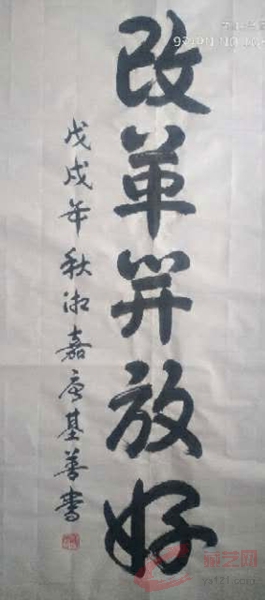 改革开放好
戊戌年秋淑嘉唐基善書